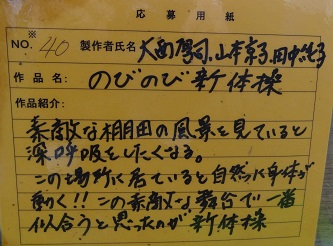 応募用紙
※
NO. 40 製作者氏名 大西啓司、山本京子、田中
作品名: のびのび新体操
作品紹介:
素敵な棚田の風景を見ていると
深呼吸をしたくなる。
この場所に居ていると自然に身体が
動く!!この素敵な舞台で一番
似合うと思ったのが新体操